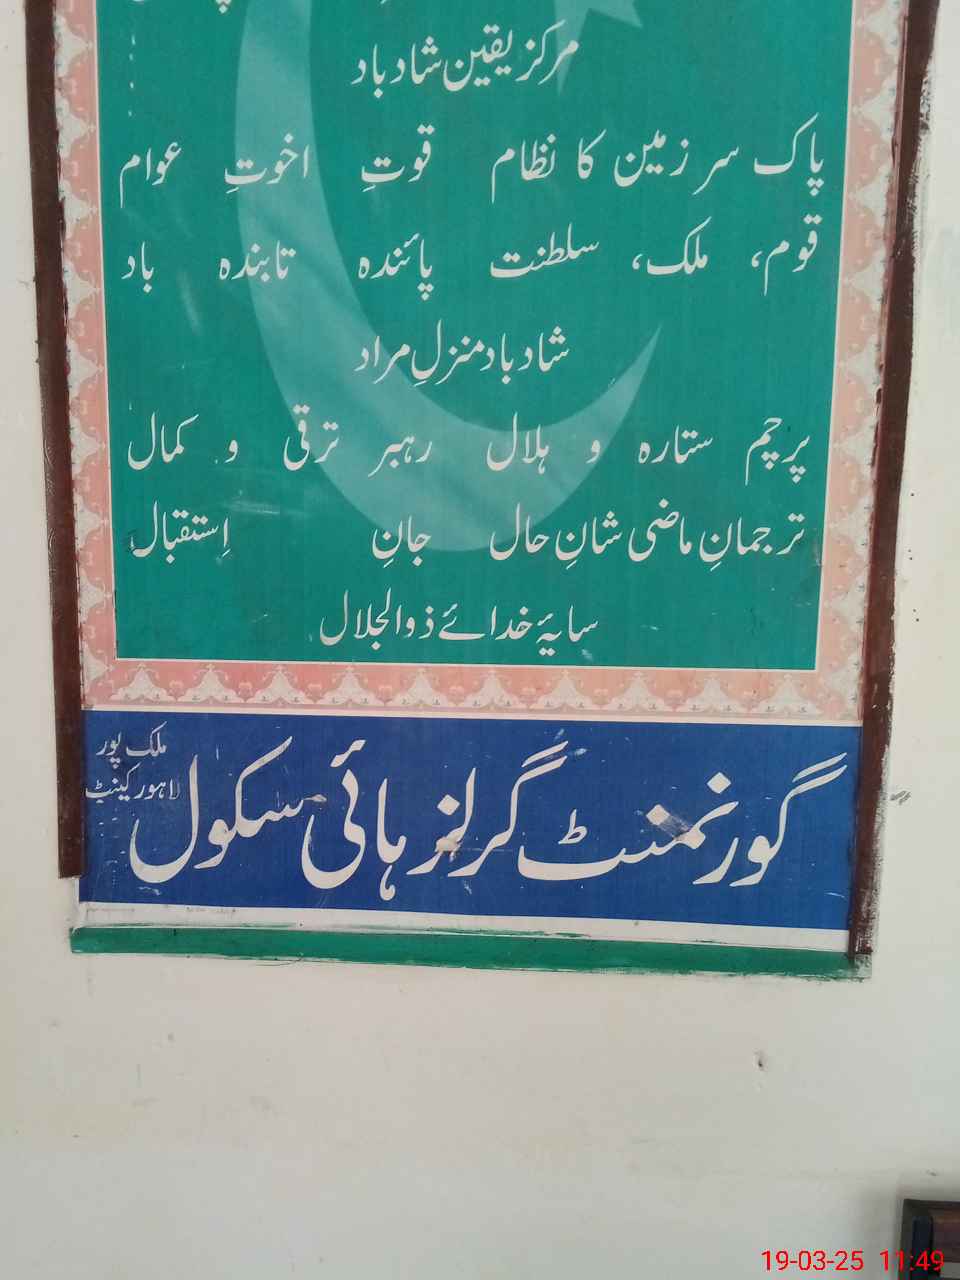 مرکز یقین شاد باد
پاک سر زمین کا نظام قوتِ اخوتِ عوام
قوم، ملک، سلطنت پائندہ تابندہ باد
شاد باد منزلِ مراد
پرچم ستارہ و ہلال رہبر ترقی و کمال
ترجمانِ ماضی شانِ حال جانِ اِستقبال
سایۂ خدائے ذوالجلال
گورنمنٹ گرلز ہائی سکول
ملک پور
لاہور کینٹ
19-03-25 11:49